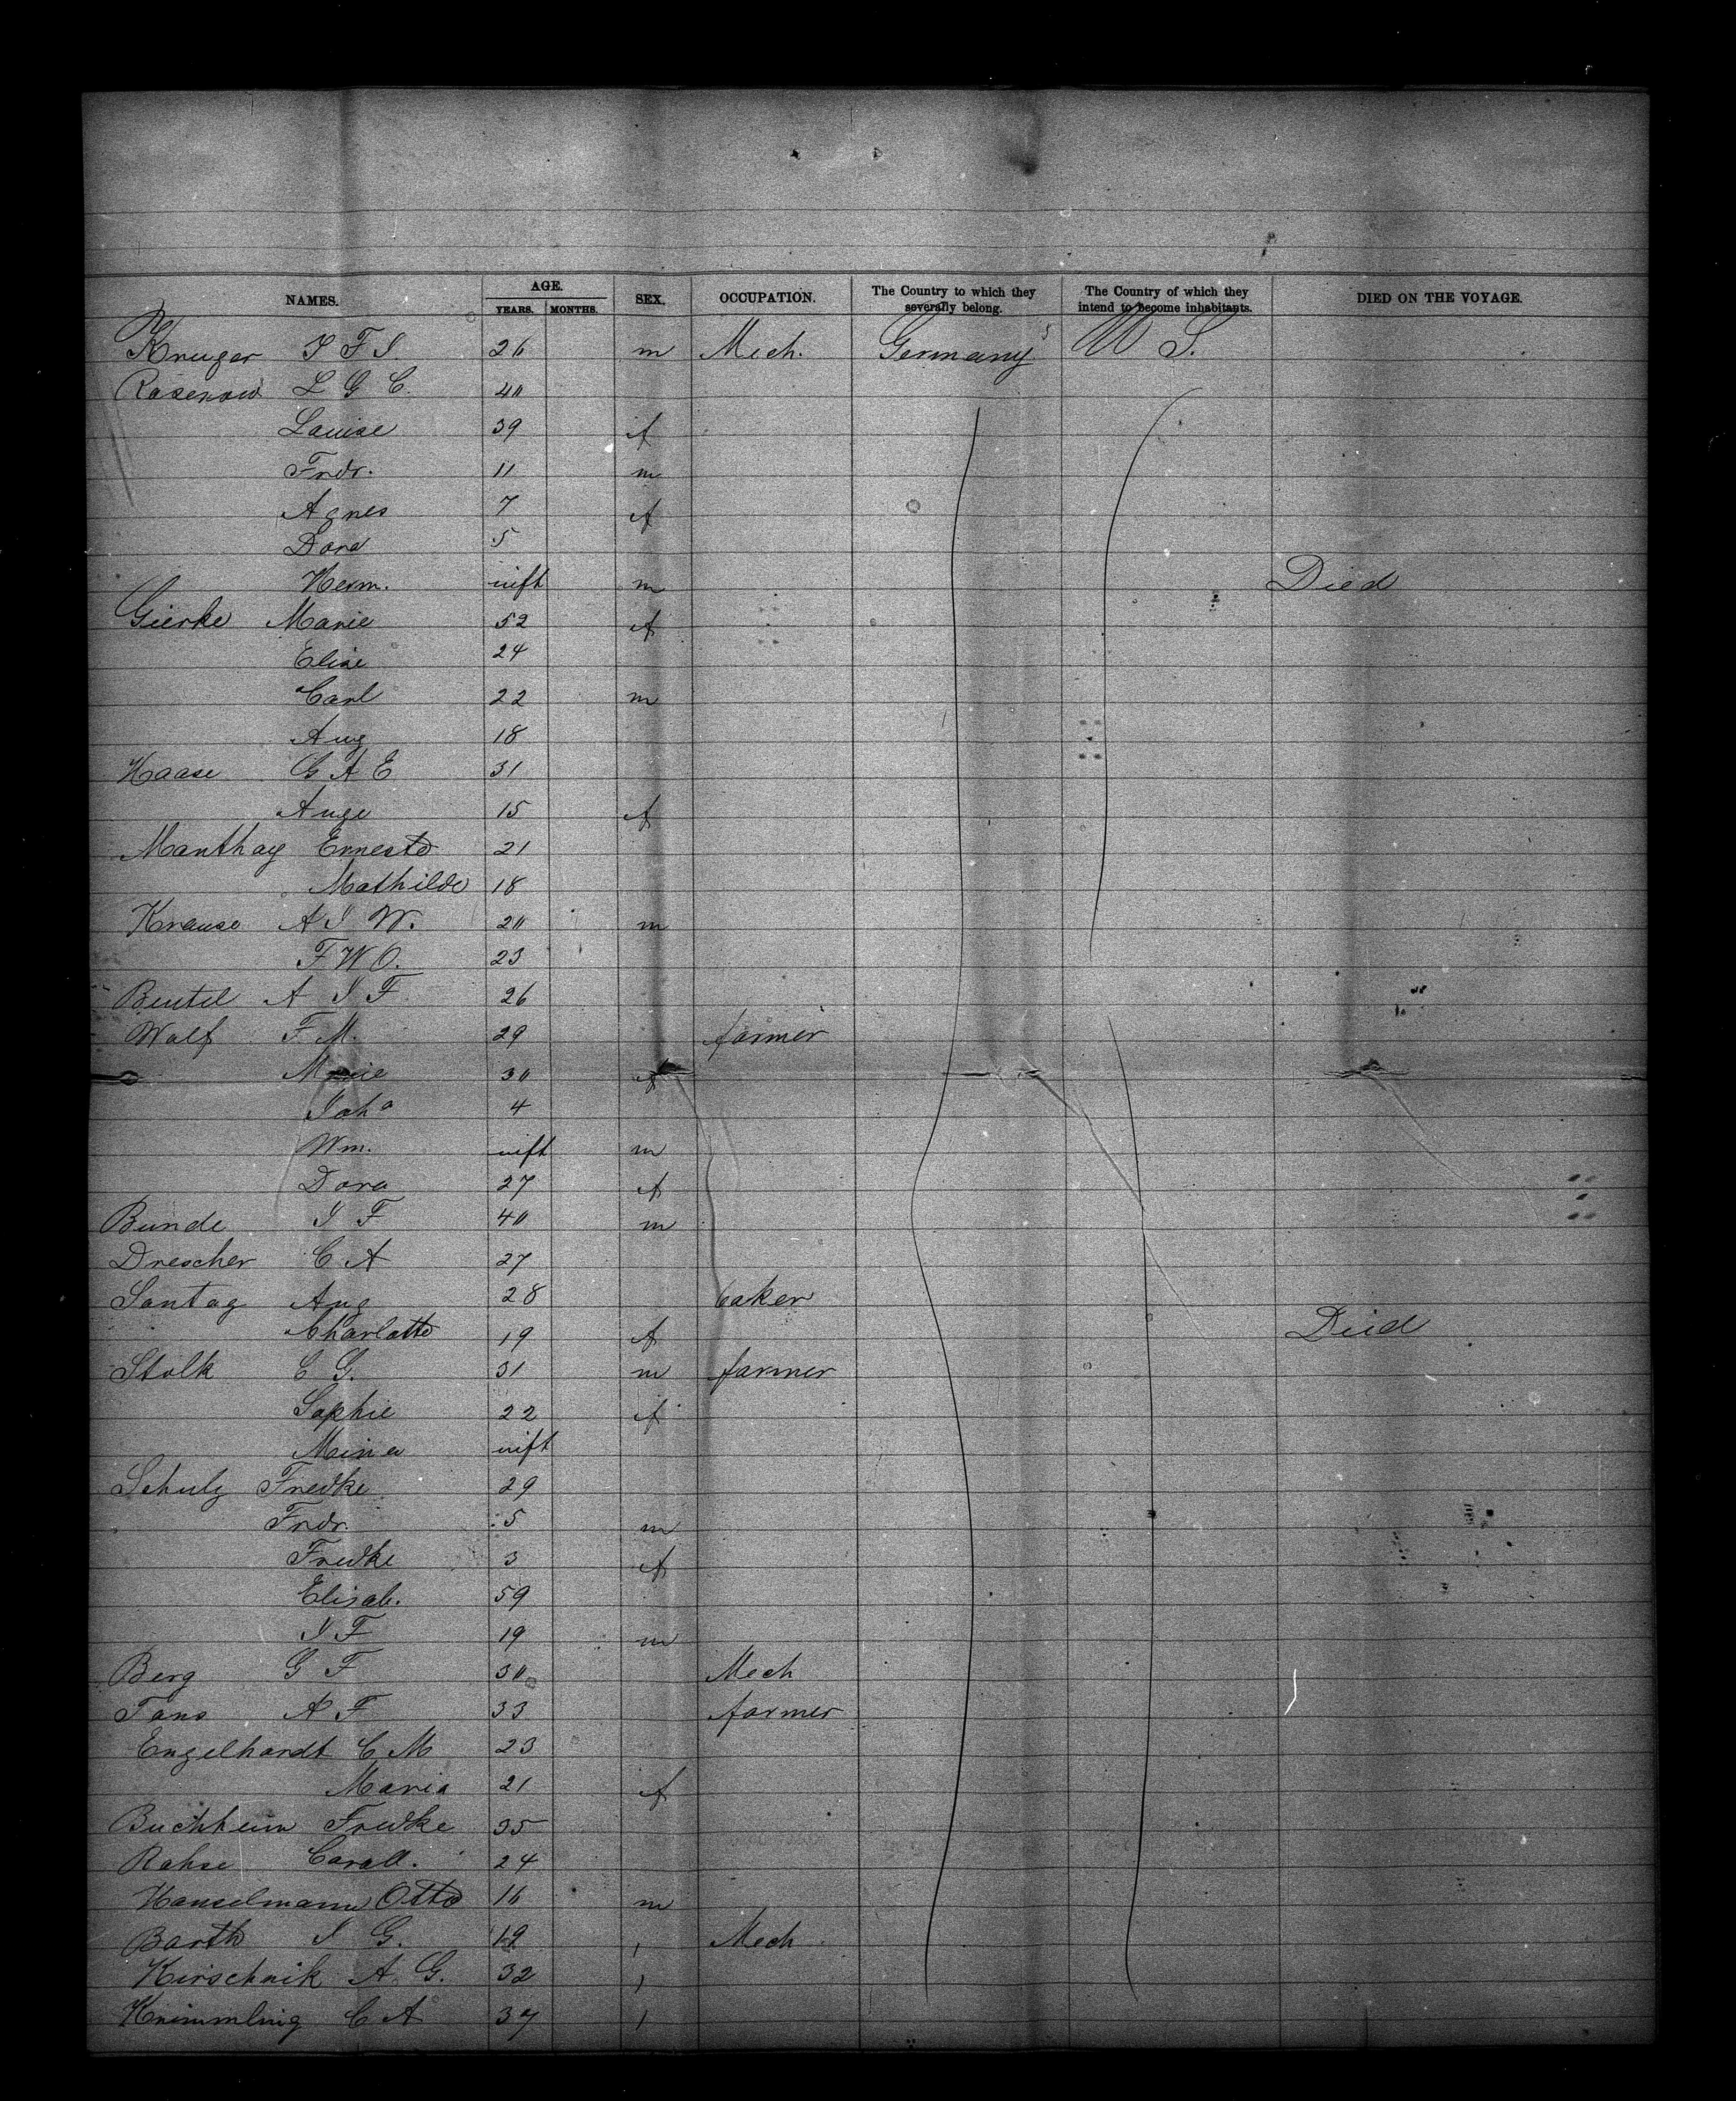 NAMES. AGE. YEARS. MONTHS. SEX. OCCUPATION. The Country to which they severally belong. The Country of which they intend to become inhabitants. DIED ON THE VOYAGE.
Kruger J F J. 26 m Mech. Germany U S.
Rosenow L G C. 40
Louise 39 f
Frdr. 11 m
Agnes 7 f
Dora 5
Herm. inft m Died
Gierke Marie 52 f
Elise 24
Carl 22 m
Aug 18
Haase G A E 31
Auge 15 f
Manthey Erneste 21
Mathilde 18
Krause A J W. 20 m
F W O. 23
Beutel A J F. 26
Wolf F M. 29 farmer
Marie 30 f
Joha 4
Wm. inft m
Dora 27 f
Bunde J F 40 m
Drescher C A 27
Sontag Aug 28 baker
Charlotte 19 f Died
Stolk C G. 31 m farmer
Sophie 22 f
Mina inft
Schulz Fredke 29
Frdr. 5 m
Fredke 3 f
Elisab. 59
J F 19 m
Berg G F 30 Mech
Tans A F 33 farmer
Engelhardt C M 23
Maria 21 f
Buchheim Fredke 35
Rohse Caroll. 24
Hanselmann Otto 16 m
Barth J G. 19 , Mech
Kirschnik A. G. 32 ,
Krimmling C A 37 ,